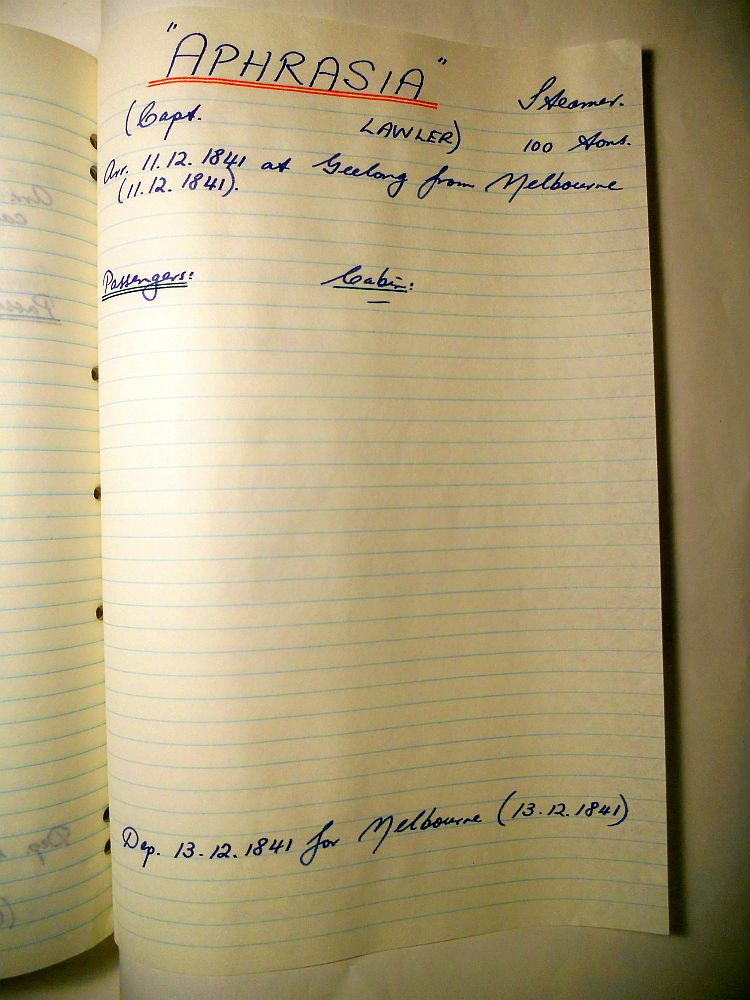 "APHRASIA"
Steamer.
(Capt. LAWLER) 100 tons.
Arr. 11.12.1841 at Geelong from Melbourne
(11.12.1841).
Passengers: Cabin:
Dep. 13.12.1841 for Melbourne (13.12.1841)